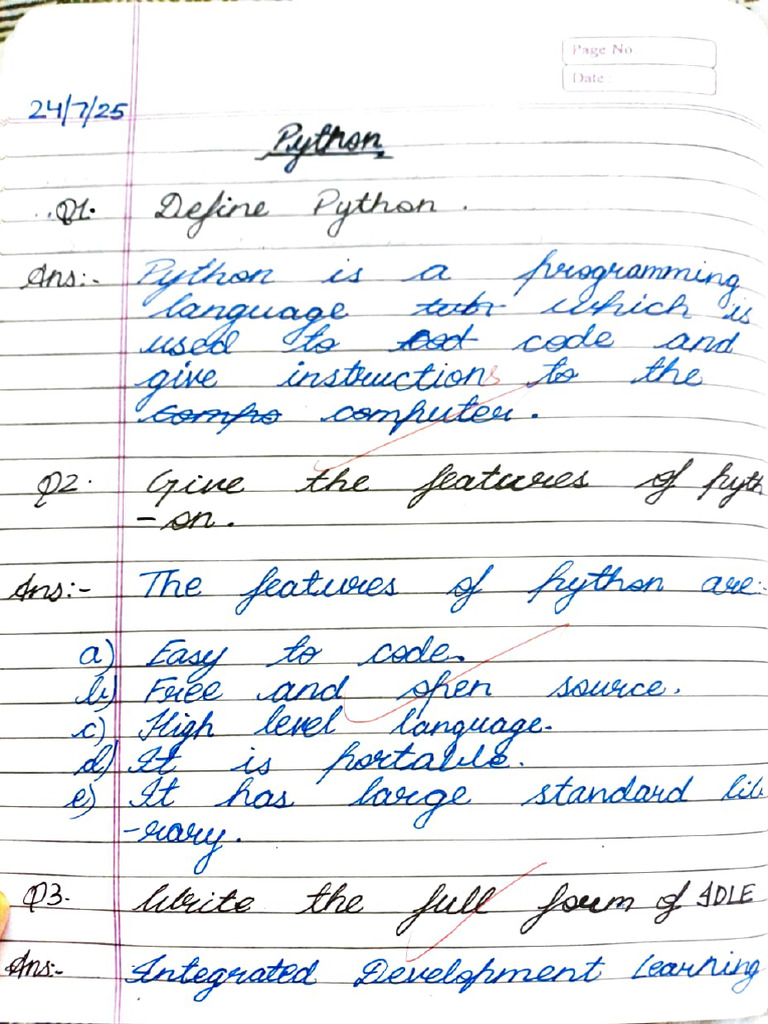 Page No
Date:
24/7/25
Python
Q1. Define Python.
Ans:- Python is a programming
language which is
used to code and
give instructions to the
compo computer.
Q2. Give the features of pyth
-on.
Ans:- The features of python are:-
a) Easy to code.
b) Free and open source.
c) High level language.
d) It is portable.
e) It has large standard lib
-rary.
Q3. Write the full form of IDLE
Ans:- Integrated Development Learning